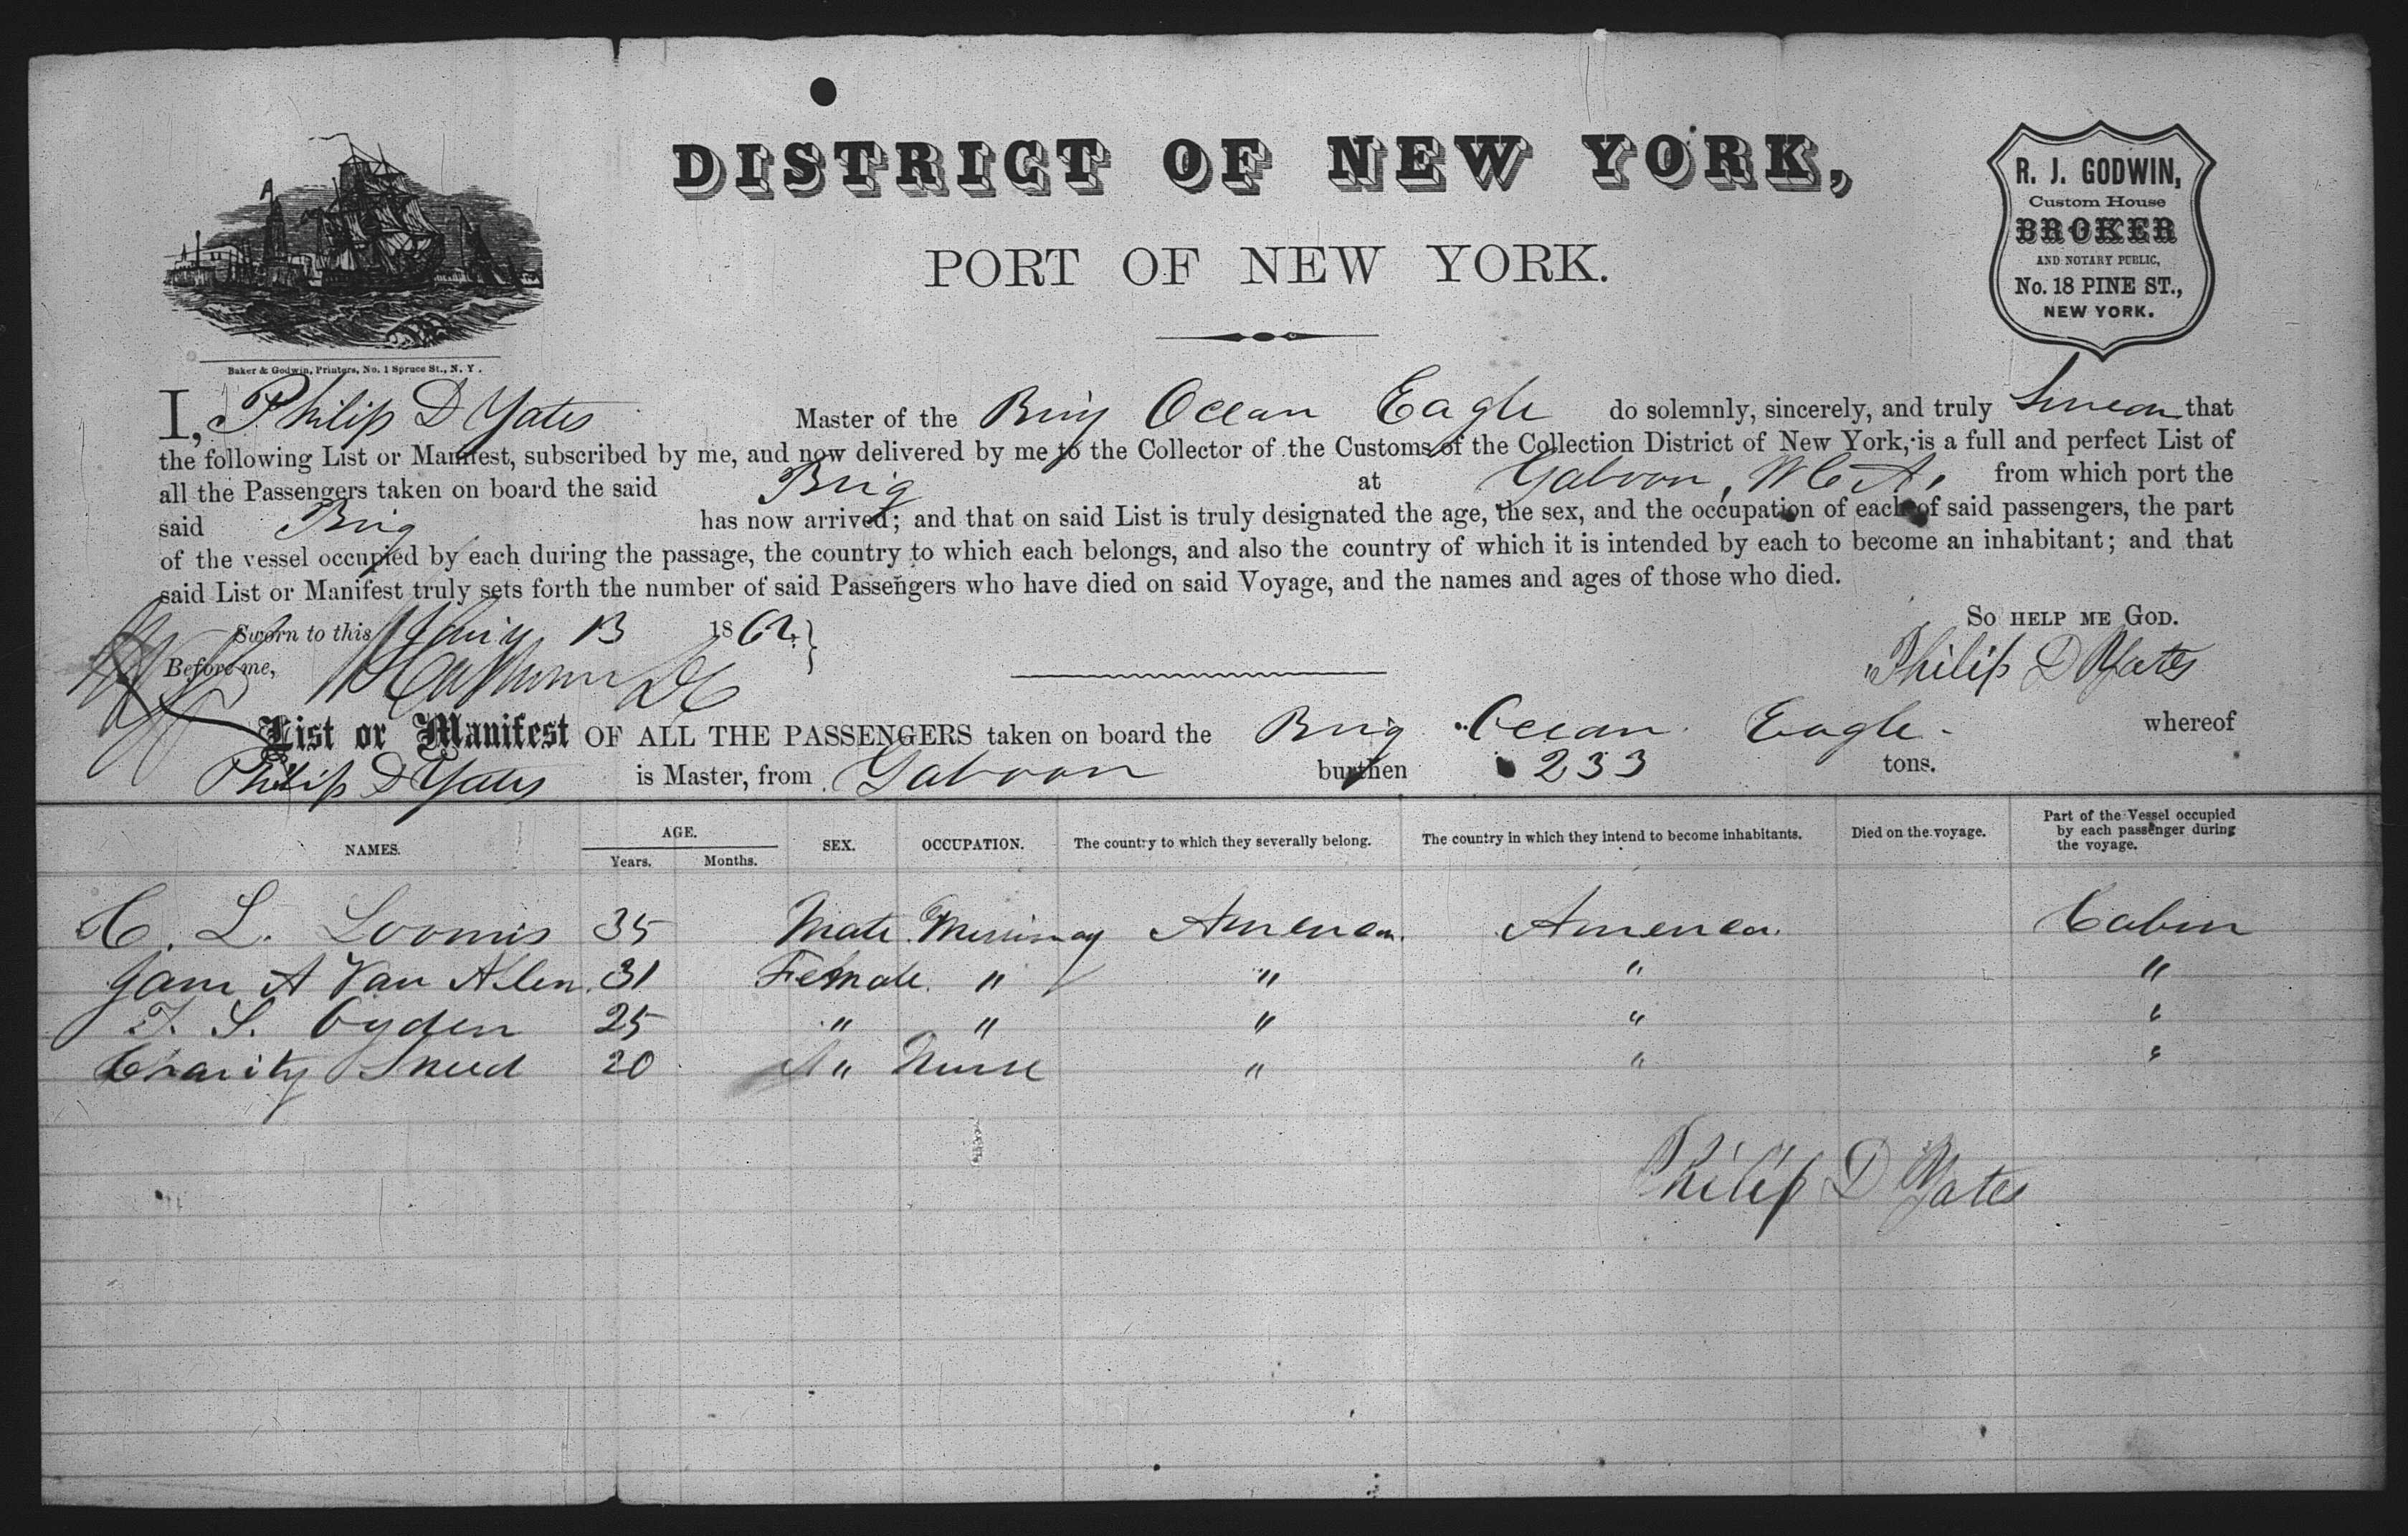 DISTRICT OF NEW YORK,
PORT OF NEW YORK.
R. J. GODWIN,
Custom House
BROKER
AND NOTARY PUBLIC,
No. 18 PINE ST.,
NEW YORK.
Baker & Godwin, Printers, No. 1 Spruce St., N. Y.
I, Philip D Yates Master of the Brig Ocean Eagle do solemnly, sincerely, and truly Swear that
the following List or Manifest, subscribed by me, and now delivered by me to the Collector of the Customs of the Collection District of New York, is a full and perfect List of
all the Passengers taken on board the said Brig at Gaboon, W C A, from which port the
said Brig has now arrived; and that on said List is truly designated the age, the sex, and the occupation of each of said passengers, the part
of the vessel occupied by each during the passage, the country to which each belongs, and also the country of which it is intended by each to become an inhabitant; and that
said List or Manifest truly sets forth the number of said Passengers who have died on said Voyage, and the names and ages of those who died.
So help me God.
Sworn to this 13 1862.
Before me,
Philip D Yates
List or Manifest OF ALL THE PASSENGERS taken on board the Brig Ocean Eagle whereof
Philip D Yates is Master, from Gaboon burthen 233 tons.
NAMES. AGE. Years. Months. SEX. OCCUPATION. The country to which they severally belong. The country in which they intend to become inhabitants. Died on the voyage. Part of the Vessel occupied by each passenger during the voyage.
C. L. Loomis 35 Male Missinay American. America. Cabin
Jane A Van Allen. 31 Female. " " " "
T. S. Ogden 25 " " " " "
Charity Sneed 20 " Nurse " " "
Philip D Yates